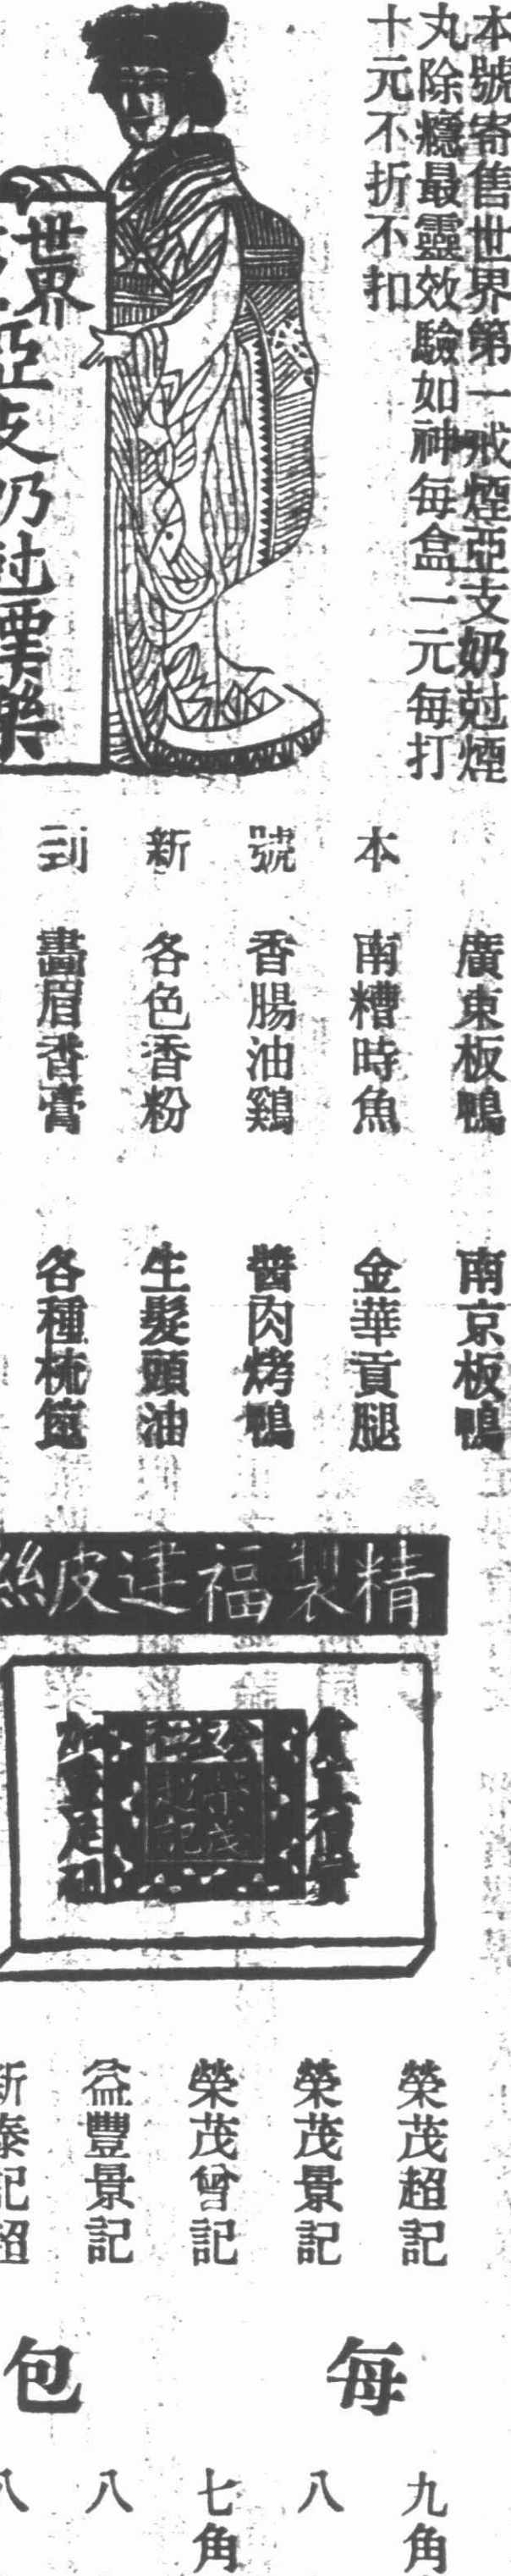 本號寄售世界第一戒煙亞支奶尅煙
丸除癮最靈效驗如神每盒一元每打
十元不折不扣
世界
亞支奶尅煙藥
廣東板鴨 南京板鴨
本 南糟時魚 金華貢腿
號 香腸油鷄 醬肉烤鴨
新 各色香粉 生髮頭油
到 畵眉香膏 各種梳篦
精製福建皮絲
榮茂超記 九角
榮茂景記 八
榮茂曾記 七角
益豐景記 八
新泰記超 八
每包